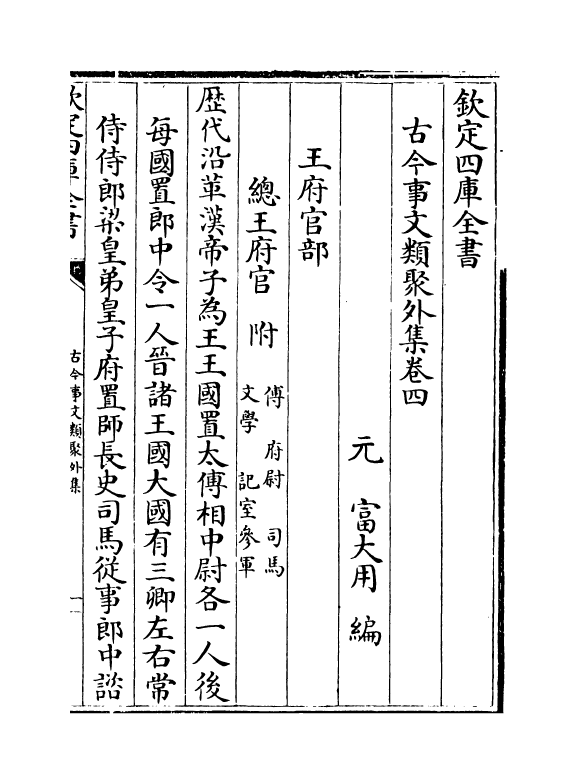 欽定四庫全書
古今事文類聚外集卷四
元　富大用　編
王府官部
總王府官　附　傅　府尉　司馬
文學　記室參軍
歴代沿革漢帝子為王王國置太傅相中尉各一人後
每國置郎中令一人晉諸王國大國有三卿左右常
侍侍郎梁皇弟皇子府置師長史司馬從事郎中諮
欽定四庫全書
古今事文類聚外集
一